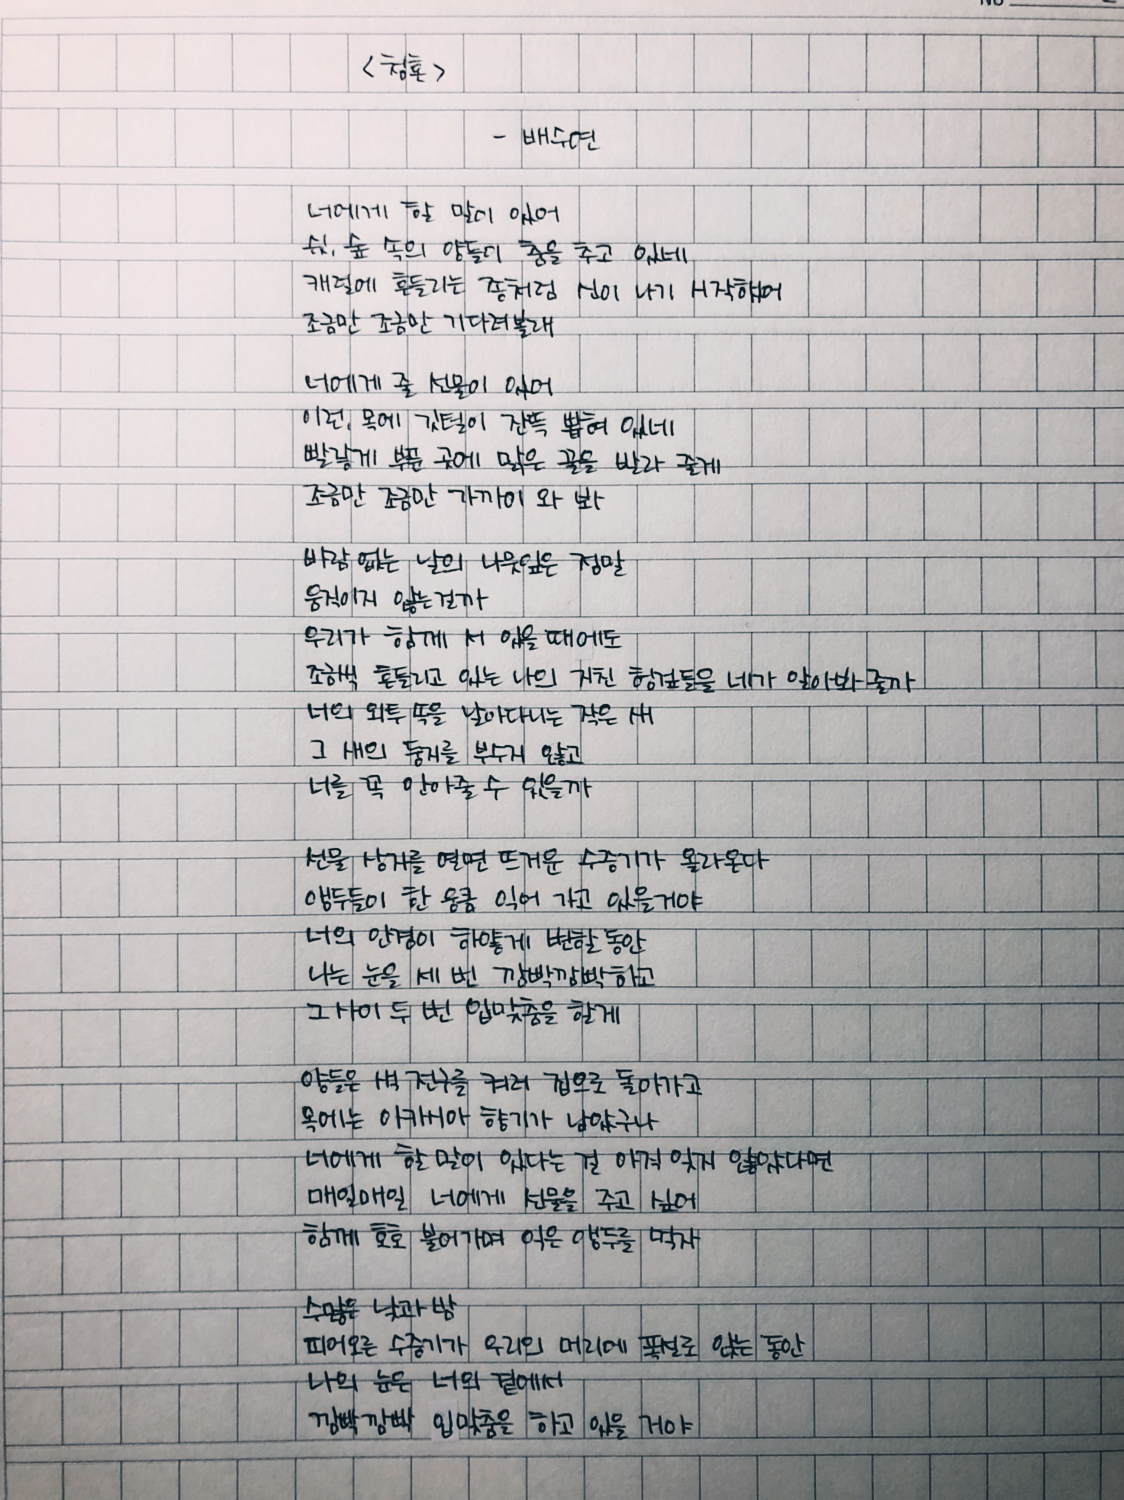 No
<청혼>
- 배수연
너에게 할 말이 있어
쉿, 숲 속의 양들이 춤을 추고 있네
캐럴에 흔들리는 종처럼 신이 나기 시작했어
조금만 조금만 기다려볼래
너에게 줄 선물이 있어
이런, 목에 깃털이 잔뜩 뽑혀 있네
빨갛게 부푼 곳에 맑은 꿀을 발라 줄게
조금만 조금만 가까이 와 봐
바람 없는 날의 나뭇잎은 정말
움직이지 않는걸까
우리가 함께 서 있을 때에도
조금씩 흔들리고 있는 나의 지친 헝겊들을 네가 알아봐 줄까
너의 외투 쪽을 날아다니는 작은 새
그 새의 둥지를 부수지 않고
너를 꼭 안아줄 수 있을까
선물 상자를 열면 뜨거운 수증기가 올라온다
앵두들이 한 움큼 익어 가고 있을거야
너의 안경이 하얗게 변할 동안
나는 눈을 세 번 깜빡깜빡하고
그 사이 두 번 입맞춤을 할게
양들은 새 전구를 켜러 집으로 돌아가고
목에는 아카시아 향기가 남았구나
너에게 할 말이 있다는 걸 아직 잊지 않았다면
매일매일 너에게 선물을 주고 싶어
함께 호호 불어가며 익은 앵두를 먹자
수많은 낮과 밤
피어오른 수증기가 우리의 머리에 폭설로 앉는 동안
나의 눈은 너의 곁에서
깜빡깜빡 입맞춤을 하고 있을 거야